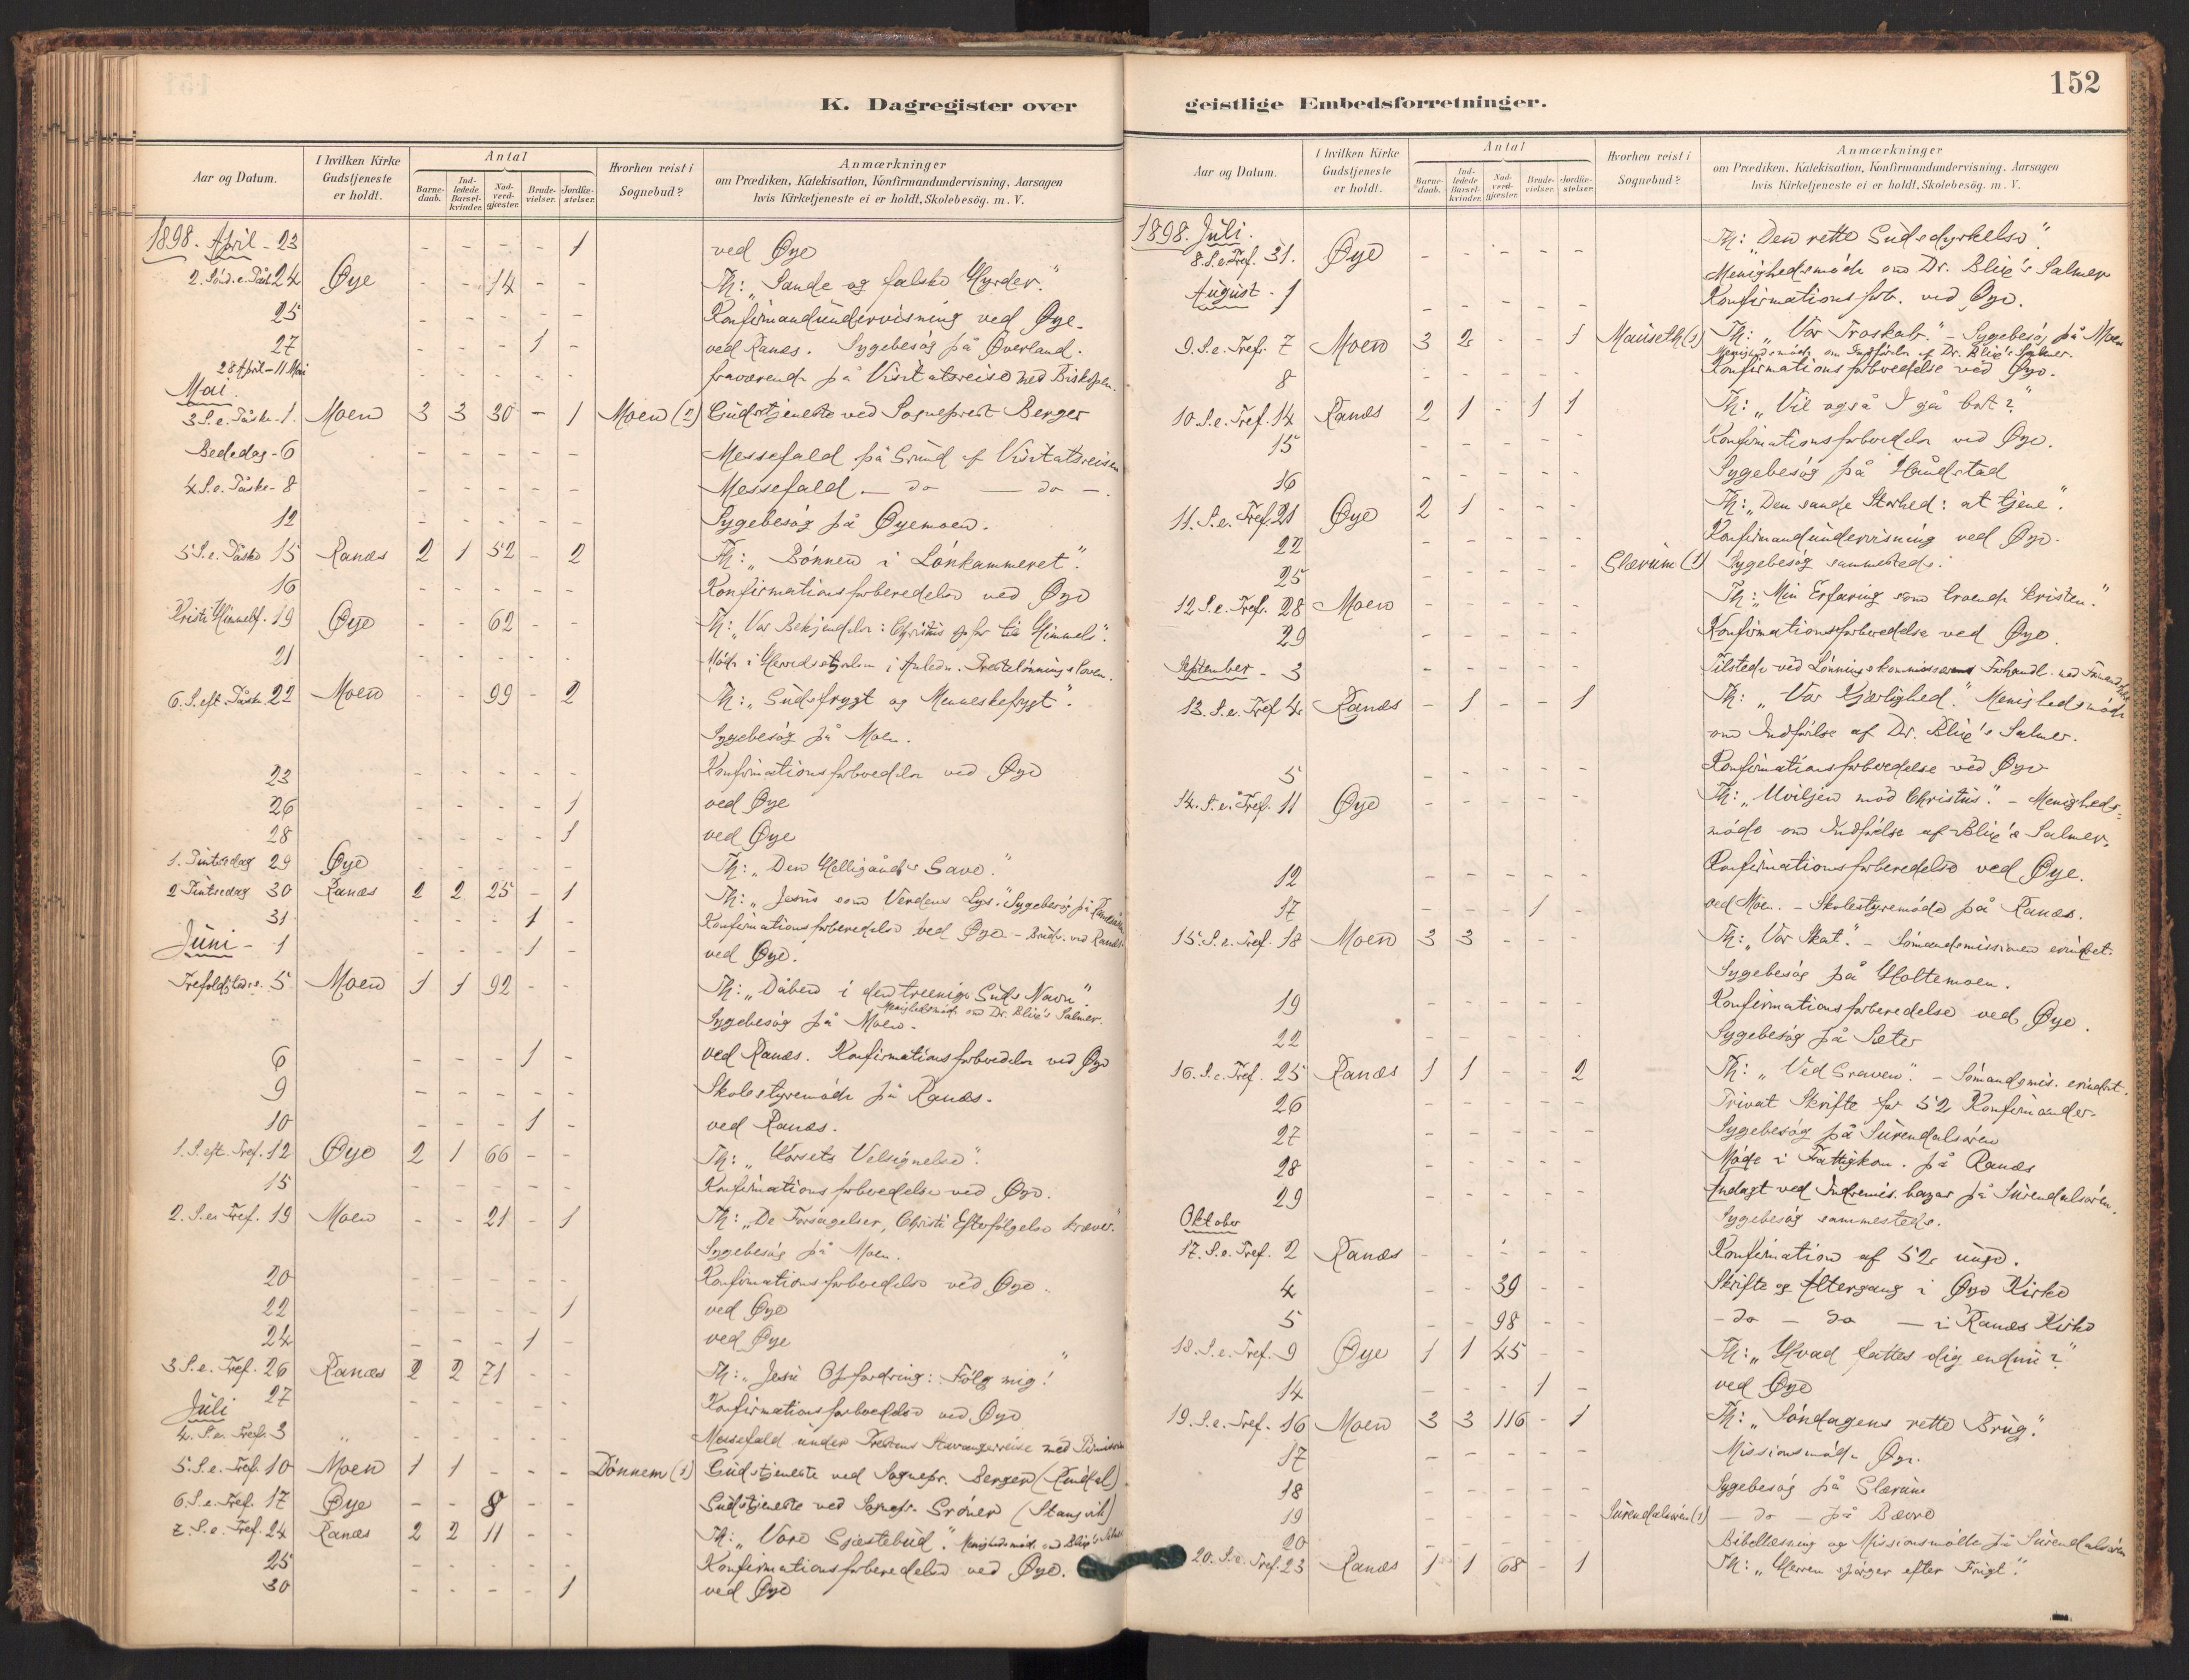 152
K. Dagregister over
Aar og Datum. | I hvilken Kirke Gudstjeneste er holdt. | Antal | Barnedaab. | Indledede Barselkvinder. | Nadverdgjæster. | Brudevielser. | Jordfæstelser. | Hvorhen reist i Sognebud? | Anmærkninger om Prædiken, Katekisation, Konfirmandundervisning, Aarsagen hvis Kirketjeneste ei er holdt, Skolebesög. m. V.
1898. April - 23 | | - | - | - | - | 1 | | ved Øye
2. Sönd. e. Påsk. 24 | Øye | - | - | 14 | - | - | | Th: „Sande og falske Hyrder."
25 | | - | - | - | - | - | | Konfirmandundervisning ved Øye.
27 | | - | - | - | 1 | - | | ved Ranæs. Sygebesög på Øverland.
28 April - 11 Mai | | - | - | - | - | - | | fraværende på Visitatsreise med Biskopen.
Mai
3 S. e. Påske - 1. | Moen | 3 | 3 | 30 | - | 1 | Moen (2) | Gudstjeneste ved Sogneprest Berger
Bededag - 6 | | - | - | - | - | - | | Messefald på Grund af Visitatsreisen
4 S. e. Påske - 8 | | - | - | - | - | - | | Messefald - do - do -.
12 | | - | - | - | - | - | | Sygebesög på Øyemoen.
5 S. e. Påske 15 | Ranæs | 2 | 1 | 52 | - | 2 | | Th: „Bönnen i Lönkammeret".
16 | | - | - | - | - | - | | Konfirmationsforberedelse ved Øye
Kristi Himmelf. 19 | Øye | - | - | 62 | - | - | | Th: „Vor Bekjendelse: Christus opfor til Himmels".
21 | | - | - | - | - | - | | Möde i Herredsstyrelsen i Anledn. Prestelönnings Loven.
6. S. eft. Påske 22 | Moen | - | - | 99 | - | 2 | | Th: „Gudsfrygt og Menneskefrygt".
Sygebesög på Moen.
23 | | - | - | - | - | - | | Konfirmationsforberedelse ved Øye
26 | | - | - | - | - | 1 | | ved Øye
28 | | - | - | - | - | 1 | | ved Øye
1. Pintsedag 29 | Øye | - | - | - | - | - | | Th: „Den Helligånds Gave."
2 Pintsedag 30 | Ranæs | 2 | 2 | 25 | - | 1 | | Th: „Jesus som Verdens Lys". Sygebesög på
31 | | - | - | - | 1 | - | | Konfirmationsforberedelse ved Øye - Brudev. ved Ranæs
Juni - 1 | | - | - | - | 1 | - | | ved Øye.
Trefoldighedss. 5 | Moen | 1 | 1 | 92 | - | - | | Th: „Dåben i den treenige Guds Navn".
Menighedsmöde om Dr. Blix's Salmer.
Sygebesög på Moen.
6 | | - | - | - | 1 | - | | ved Ranæs. Konfirmationsforberedelse ved Øye
9 | | - | - | - | - | - | | Skolestyremöde på Ranæs.
10 | | - | - | - | 1 | - | | ved Ranæs.
1. S. eft. Tref. 12 | Øye | 2 | 1 | 66 | - | - | | Th: „Korsets Velsignelse".
15 | | - | - | - | - | - | | Konfirmationsforberedelse ved Øye.
2. S. e. Tref. 19 | Moen | - | - | 21 | - | 1 | | Th: „De Forsagelser, Christi Efterfölgelse kræver."
Sygebesög på Moen.
20 | | - | - | - | - | - | | Konfirmationsforberedelse ved Øye.
22 | | - | - | - | - | 1 | | ved Øye
24 | | - | - | - | 1 | - | | ved Øye
3 S. e. Tref. 26 | Ranæs | 2 | 2 | 71 | - | - | | Th: „Jesu Opfordring: Fölg mig!"
27 | | - | - | - | - | - | | Konfirmationsforberedelse ved Øye
Juli
4. S. e. Tref. 3 | „ | - | - | - | - | - | | Messefald under Prestens Stavangerreise
5. S. e. Tref. 10 | Moen | 1 | 1 | - | - | - | Dönnem (1) | Gudstjeneste ved Sognepr. Berger (Rindal)
6. S. e. Tref. 17 | Øye | - | - | 8 | - | - | | Gudstjeneste ved Sognepr. Gröner (Stangvik)
7. S. e. Tref. 24 | Ranæs | 2 | 2 | 11 | - | - | | Th: „Vore Gjæstebud". Menighedsmöde om Blix's Salmer
25 | | - | - | - | - | - | | Konfirmationsforberedelse ved Øye.
30 | | - | - | - | - | 1 | | ved Øye
geistlige Embedsforretninger.
Aar og Datum. | I hvilken Kirke Gudstjeneste er holdt. | Antal | Barnedaab. | Indledede Barselkvinder. | Nadverdgjæster. | Brudevielser. | Jordfæstelser. | Hvorhen reist i Sognebud? | Anmærkninger om Prædiken, Katekisation, Konfirmandundervisning, Aarsagen hvis Kirketjeneste ei er holdt, Skolebesög. m. V.
1898. Juli.
8. S. e. Tref. 31. | Øye | - | - | - | - | - | | Th: „Den rette Gudsdyrkelse".
Menighedsmöde om Dr. Blix's Salmer
August - 1 | | - | - | - | - | - | | Konfirmationsforb. ved Øye.
9. S. e. Tref. 7 | Moen | 3 | 2 | - | - | 1 | Mauseth (1) | Th: „Vor Troskab." - Sygebesög på Moen
Menighedsmöde om Indförelse af Dr. Blix's Salmer.
8 | | - | - | - | - | - | | Konfirmationsforberedelse ved Øye.
10. S. e. Tref. 14 | Ranæs | 2 | 1 | - | 1 | 1 | | Th: „Vil også I gå bort?"
15 | | - | - | - | - | - | | Konfirmationsforberedelse ved Øye.
16 | | - | - | - | - | - | | Sygebesög på Håndstad
11. S. e. Tref. 21 | Øye | 2 | 1 | - | - | - | | Th: „Den sande Storhed: at tjene".
22 | | - | - | - | - | - | | Konfirmandundervisning ved Øye.
25 | | - | - | - | - | - | Glærum (1) | Sygebesög sammesteds.
12 S. e. Tref. 28 | Moen | - | - | - | - | - | | Th: „Min Erfaring som troende kristen."
29 | | - | - | - | - | - | | Konfirmationsforberedelse ved Øye.
September - 3 | | - | - | - | - | - | | Tilstede ved Lönningskommissærens Forhandl. med
13. S. e. Tref 4 | Ranæs | - | 1 | - | - | 1 | | Th: „Vor Kjærlighed." Menighedsmöde
om Indförelse af Dr. Blix's Salmer.
5 | | - | - | - | - | - | | Konfirmationsforberedelse ved Øye
14. S. e. Tref. 11 | Øye | - | - | - | - | - | | Th: „Uviljen mod Christus." - Menigheds-
möde om Indförelse af Blix's Salmer.
12 | | - | - | - | - | - | | Konfirmationsforberedelse ved Øye.
17 | | - | - | - | 1 | - | | ved Moen. - Skolestyremöde på Ranæs.
15. S. e. Tref. 18 | Moen | 3 | 3 | - | - | - | | Th: „Vor Skat." - Sömandsmissionen erindret.
Sygebesög på Holtemoen.
19 | | - | - | - | - | - | | Konfirmationsforberedelse ved Øye.
22 | | - | - | - | - | - | | Sygebesög på Sæter
16. S. e. Tref. 25 | Ranæs | 1 | 1 | - | - | 2 | | Th: „Ved Graven". - Sömandsmis. erindret.
26 | | - | - | - | - | - | | Privat Skrifte for 52 Konfirmander.
27 | | - | - | - | - | - | | Sygebesög på Surendalsören
28 | | - | - | - | - | - | | Möde i Fattigkom. på Ranæs
29 | | - | - | - | - | - | | Andagt ved Indremis. bazar på Surendalsören.
Sygebesög sammesteds.
Oktober
17. S. e. Tref. 2 | Ranæs | - | - | - | - | - | | Konfirmation af 52 unge.
4 | | - | - | 39 | - | - | | Skrifte og Altergang i Øye Kirke
5 | | - | - | 98 | - | - | | - do - do - i Ranæs Kirke
18. S. e. Tref. 9 | Øye | 1 | 1 | 45 | - | - | | Th: „Hvad fattes dig endnu?"
14 | | - | - | - | 1 | - | | ved Øye
19. S. e. Tref. 16 | Moen | 3 | 3 | 116 | - | 1 | | Th: „Söndagens rette Brug."
17 | | - | - | - | - | - | | Missionsmöde Øye.
18 | | - | - | - | - | - | | Sygebesög på Glærum
19 | | - | - | - | - | - | Surendalsören (1) | - do - på Bævre
20 | | - | - | - | - | - | | Bibellæsning og Missionsmöte på Surendalsören
20. S. e. Tref. 23 | Ranæs | 1 | 1 | 68 | - | 1 | | Th: „Herren spörger efter Frugt".